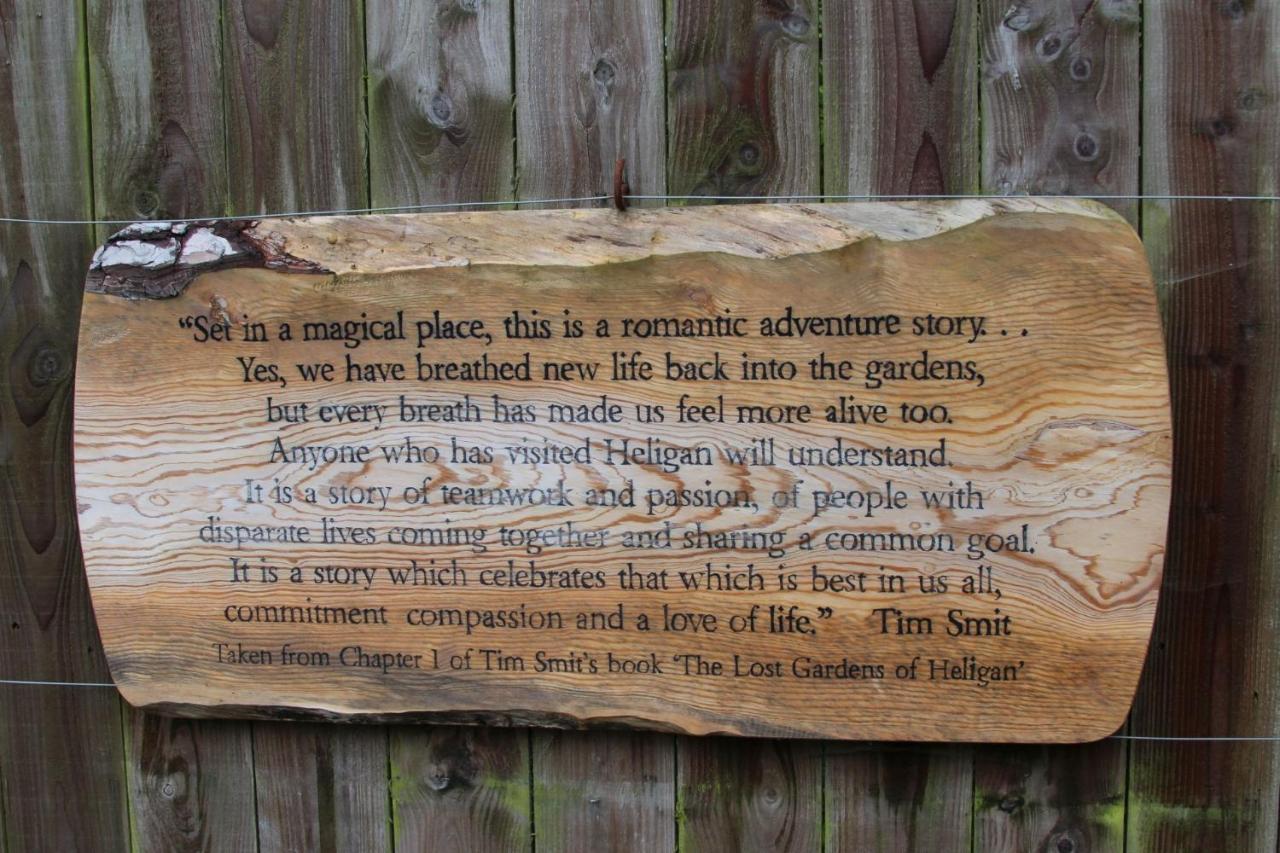 “Set in a magical place, this is a romantic adventure story. . .
Yes, we have breathed new life back into the gardens,
but every breath has made us feel more alive too.
Anyone who has visited Heligan will understand.
It is a story of teamwork and passion, of people with
disparate lives coming together and sharing a common goal.
It is a story which celebrates that which is best in us all,
commitment compassion and a love of life.” Tim Smit
Taken from Chapter 1 of Tim Smit’s book ‘The Lost Gardens of Heligan’